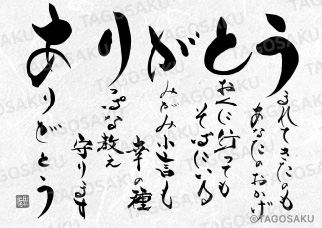 うまれてきたのも
あなたのおかげ
とおくに行っても
そばにいる
がみがみ小言も
幸の種
りっぱな教え
守ります
ありがとう
©TAGOSAKU